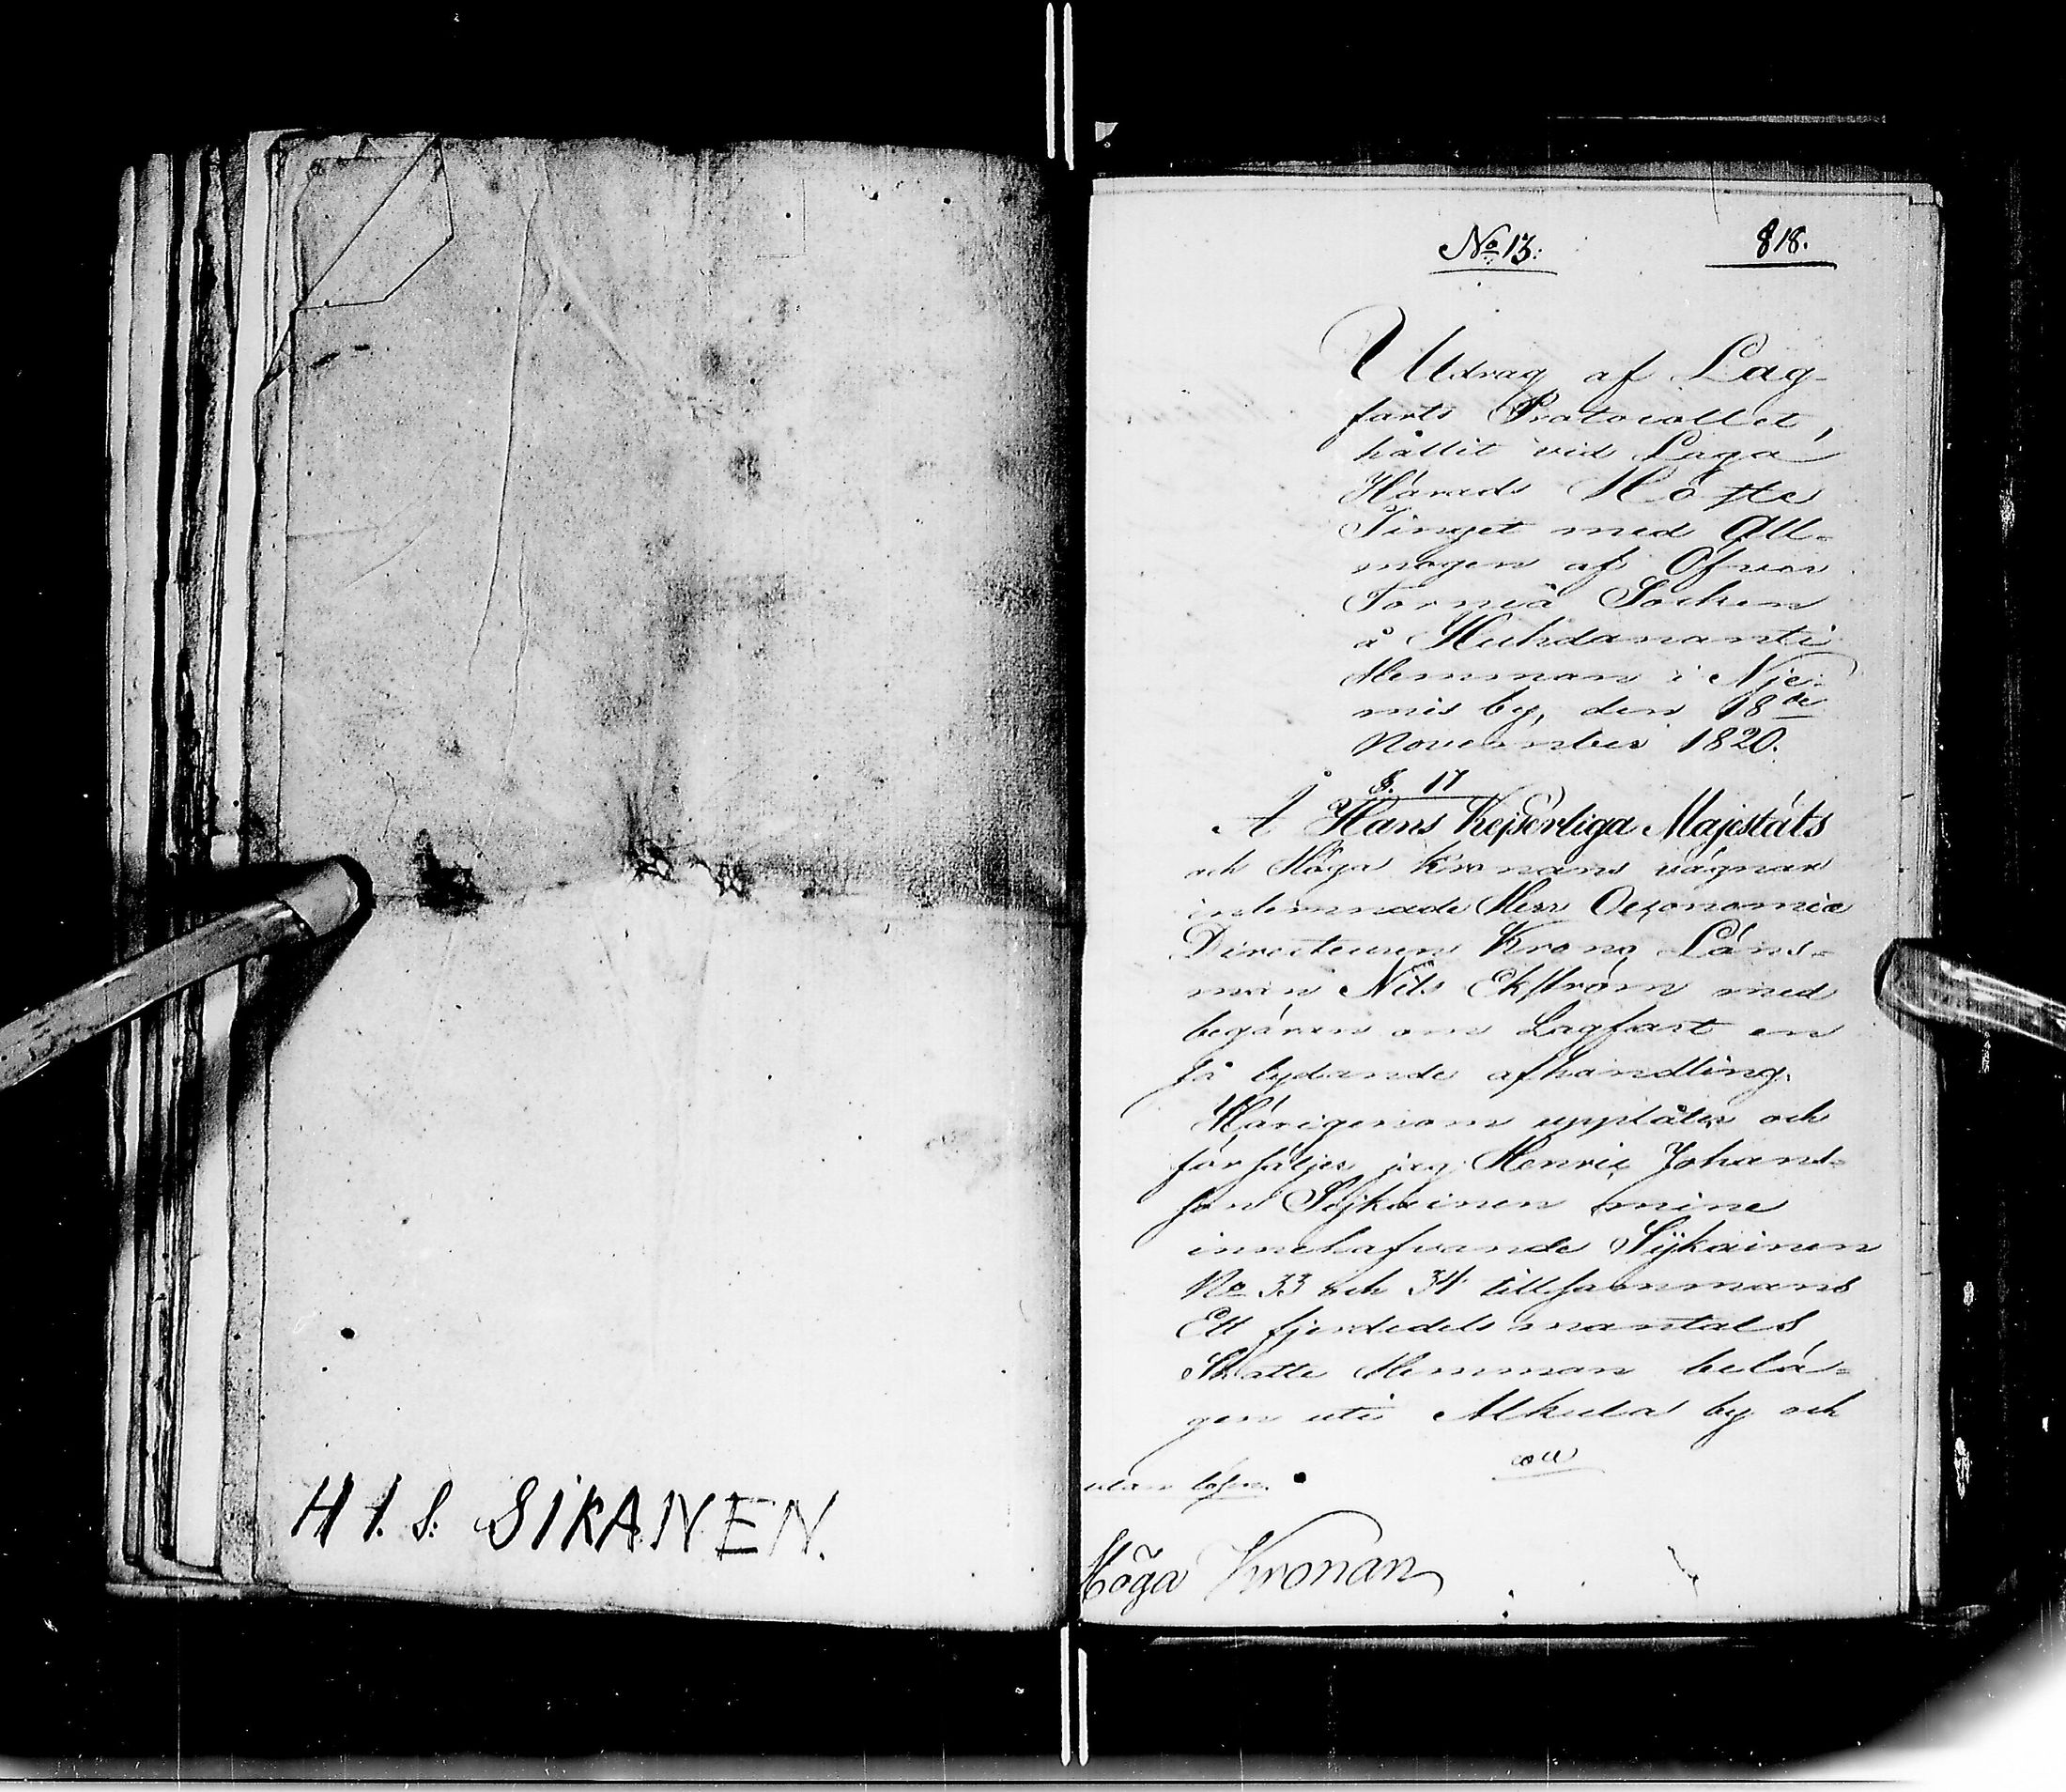 H I. S. SIKANEN.
No 13.
818.
Utdrag af Lag-
farts Protocollet,
hållit vid Laga
Härads Höste
Tinget med All-
mogen af Öfver
Torneå Socken
å Huhdananti
Hemman i Nje-
mis by, den 18de
November 1820.
§. 17
Å Hans Kejserliga Majestäts
och Höga Kronans vägnar
inlemnade Herr Oeconomie
Directeuren Krono Läns-
man Nils Ekström med
begäran om Lagfart en
så lydande afhandling.
Härigenom upplåter och
försäljer jag Henric Johans-
son Sijkainen mine
innehafvande Sijkainen
No 33 och 34 tillsammans
Ett fjerdedels mantals
Skatte Hemman belä-
gen uti Alkula by och
utan lösen.
Höga Kronan